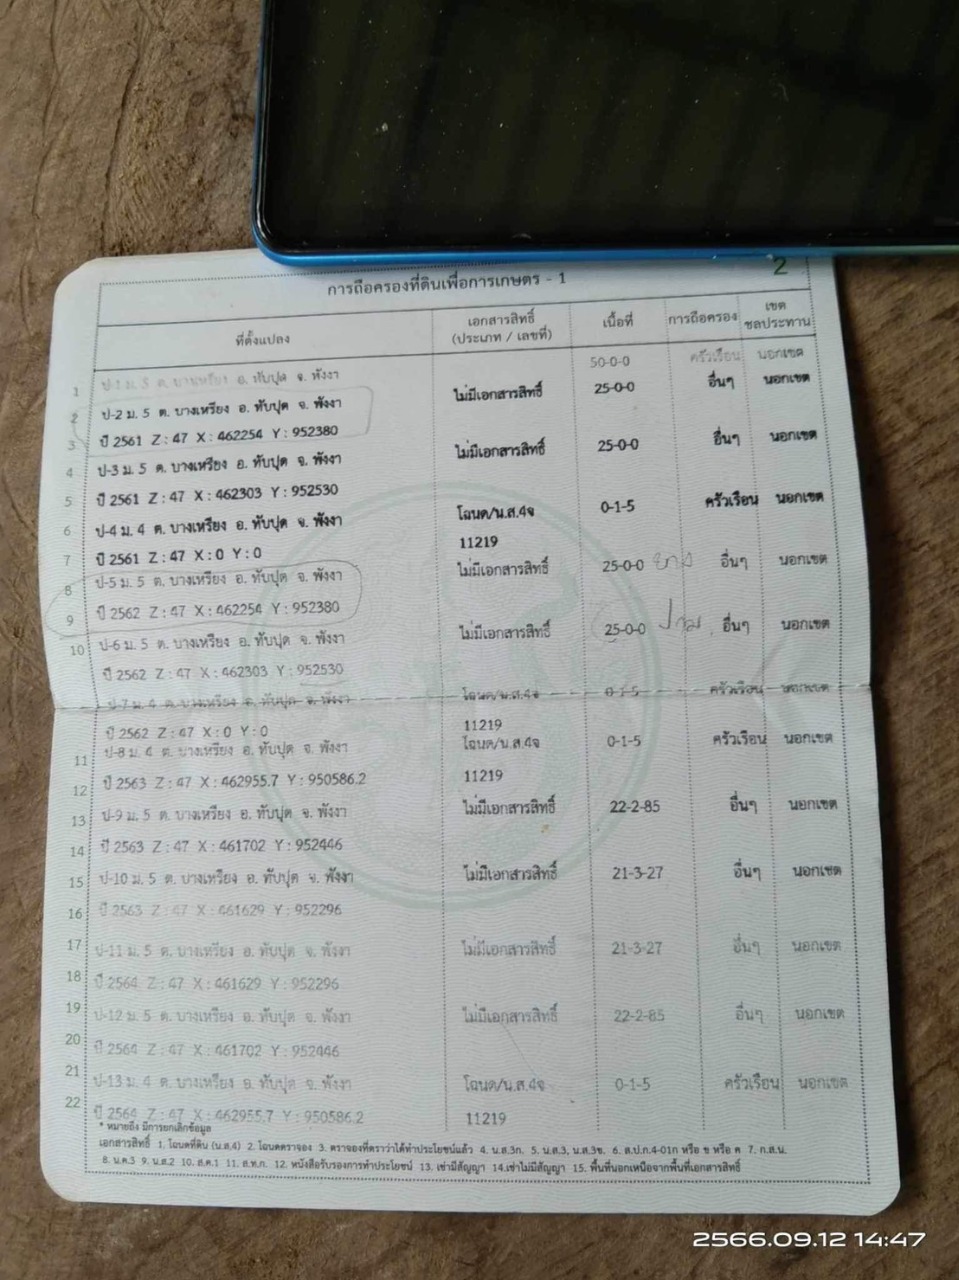 2
การถือครองที่ดินเพื่อการเกษตร - 1
ที่ตั้งแปลง เอกสารสิทธิ์ (ประเภท / เลขที่) เนื้อที่ การถือครอง เขตชลประทาน
1 ป-1 ม. 5 ต. บางเหรียง อ. ทับปุด จ. พังงา 50-0-0 ครัวเรือน นอกเขต
2 ป-2 ม. 5 ต. บางเหรียง อ. ทับปุด จ. พังงา ไม่มีเอกสารสิทธิ์ 25-0-0 อื่นๆ นอกเขต
3 ปี 2561 Z : 47 X : 462254 Y : 952380
4 ป-3 ม. 5 ต. บางเหรียง อ. ทับปุด จ. พังงา ไม่มีเอกสารสิทธิ์ 25-0-0 อื่นๆ นอกเขต
5 ปี 2561 Z : 47 X : 462303 Y : 952530
6 ป-4 ม. 4 ต. บางเหรียง อ. ทับปุด จ. พังงา โฉนด/น.ส.4จ 0-1-5 ครัวเรือน นอกเขต
7 ปี 2561 Z : 47 X : 0 Y : 0 11219
8 ป-5 ม. 5 ต. บางเหรียง อ. ทับปุด จ. พังงา ไม่มีเอกสารสิทธิ์ 25-0-0 ยาง อื่นๆ นอกเขต
9 ปี 2562 Z : 47 X : 462254 Y : 952380
10 ป-6 ม. 5 ต. บางเหรียง อ. ทับปุด จ. พังงา ไม่มีเอกสารสิทธิ์ 25-0-0 ปาล์ม อื่นๆ นอกเขต
ปี 2562 Z : 47 X : 462303 Y : 952530
ป-7 ม. 4 ต. บางเหรียง อ. ทับปุด จ. พังงา โฉนด/น.ส.4จ 0-1-5 ครัวเรือน นอกเขต
ปี 2562 Z : 47 X : 0 Y : 0 11219
11 ป-8 ม. 4 ต. บางเหรียง อ. ทับปุด จ. พังงา โฉนด/น.ส.4จ 0-1-5 ครัวเรือน นอกเขต
12 ปี 2563 Z : 47 X : 462955.7 Y : 950586.2 11219
13 ป-9 ม. 5 ต. บางเหรียง อ. ทับปุด จ. พังงา ไม่มีเอกสารสิทธิ์ 22-2-85 อื่นๆ นอกเขต
14 ปี 2563 Z : 47 X : 461702 Y : 952446
15 ป-10 ม. 5 ต. บางเหรียง อ. ทับปุด จ. พังงา ไม่มีเอกสารสิทธิ์ 21-3-27 อื่นๆ นอกเขต
16 ปี 2563 Z : 47 X : 461629 Y : 952296
17 ป-11 ม. 5 ต. บางเหรียง อ. ทับปุด จ. พังงา ไม่มีเอกสารสิทธิ์ 21-3-27 อื่นๆ นอกเขต
18 ปี 2564 Z : 47 X : 461629 Y : 952296
19 ป-12 ม. 5 ต. บางเหรียง อ. ทับปุด จ. พังงา ไม่มีเอกสารสิทธิ์ 22-2-85 อื่นๆ นอกเขต
20 ปี 2564 Z : 47 X : 461702 Y : 952446
21 ป-13 ม. 4 ต. บางเหรียง อ. ทับปุด จ. พังงา โฉนด/น.ส.4จ 0-1-5 ครัวเรือน นอกเขต
22 ปี 2564 Z : 47 X : 462955.7 Y : 950586.2 11219
* หมายถึง มีการยกเลิกข้อมูล
เอกสารสิทธิ์ 1. โฉนดที่ดิน (น.ส.4) 2. โฉนดตราจอง 3. ตราจองที่ตราว่าได้ทำประโยชน์แล้ว 4. น.ส.3ก. 5. น.ส.3, น.ส.3ข. 6. ส.ป.ก.4-01ก หรือ ข หรือ ค 7. ก.ส.น.
8. น.ค.3 9. น.ส.2 10. ส.ค.1 11. ส.ท.ก. 12. หนังสือรับรองการทำประโยชน์ 13. เช่ามีสัญญา 14.เช่าไม่มีสัญญา 15. พื้นที่นอกเหนือจากพื้นที่เอกสารสิทธิ์
2566.09.12 14:47